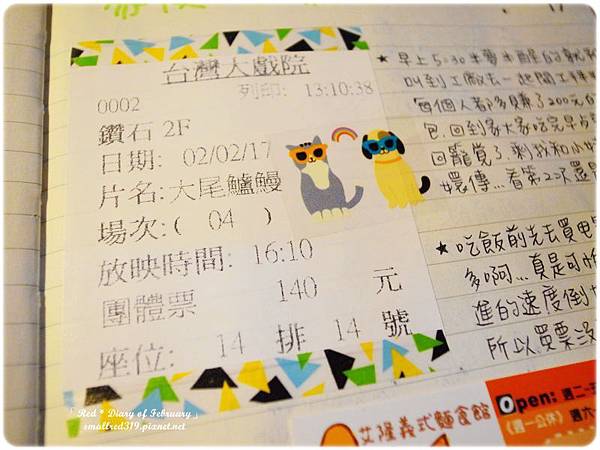 台灣大戲院
列印: 13:10:38
0002
鑽石 2F
日期: 02/02/17
片名:大尾鱸鰻
場次:( 04 )
放映時間: 16:10
團體票 140 元
座位: 14 排 14 號
★早上5:30半夢半醒的就
叫到工廠去一起開工拜
每個人都多賺了200元
包.回到家大家吃完早
回籠覺了.剩我和小
嬛傳...看第2次還
★吃飯前先去買电
多啊...真是可怕
進的速度倒
所以買票沒
艾隆義式麵食館
Open: 週二
(週一公休) 週六
「 Red * Diary of February 」
smallred319.pixnet.net